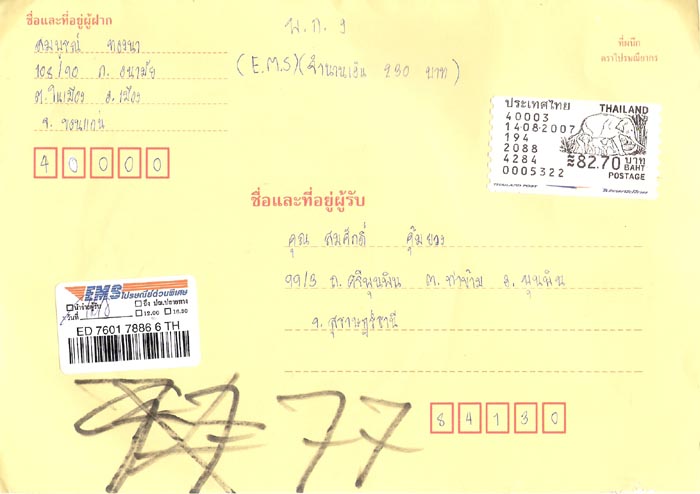 ชื่อและที่อยู่ผู้ฝาก
สมบูรณ์ ทองนา
108/90 ถ. อนามัย
ต. ในเมือง อ. เมือง
จ. ขอนแก่น
40000
พ.ก.ง
(E.M.S)(จำนวนเงิน 230 บาท)
ที่ผนึก
ตราไปรษณียากร
ประเทศไทย THAILAND
40003
14-08-2007
194
2088
4284
0005322
≈82.70 บาท
BAHT
POSTAGE
THAILAND POST
ชื่อและที่อยู่ผู้รับ
คุณ สมศักดิ์
99/3 ถ. ศรีพุนพิน ต. ท่าข้าม อ. พุนพิน
จ. สุราษฎร์ธานี
84130
EMS ไปรษณีย์ด่วนพิเศษ
นำจ่ายผู้รับ ถึง ปณ.ปลายทาง
วันที่ 12.00 16.30
ED 7601 7886 6 TH
77 77